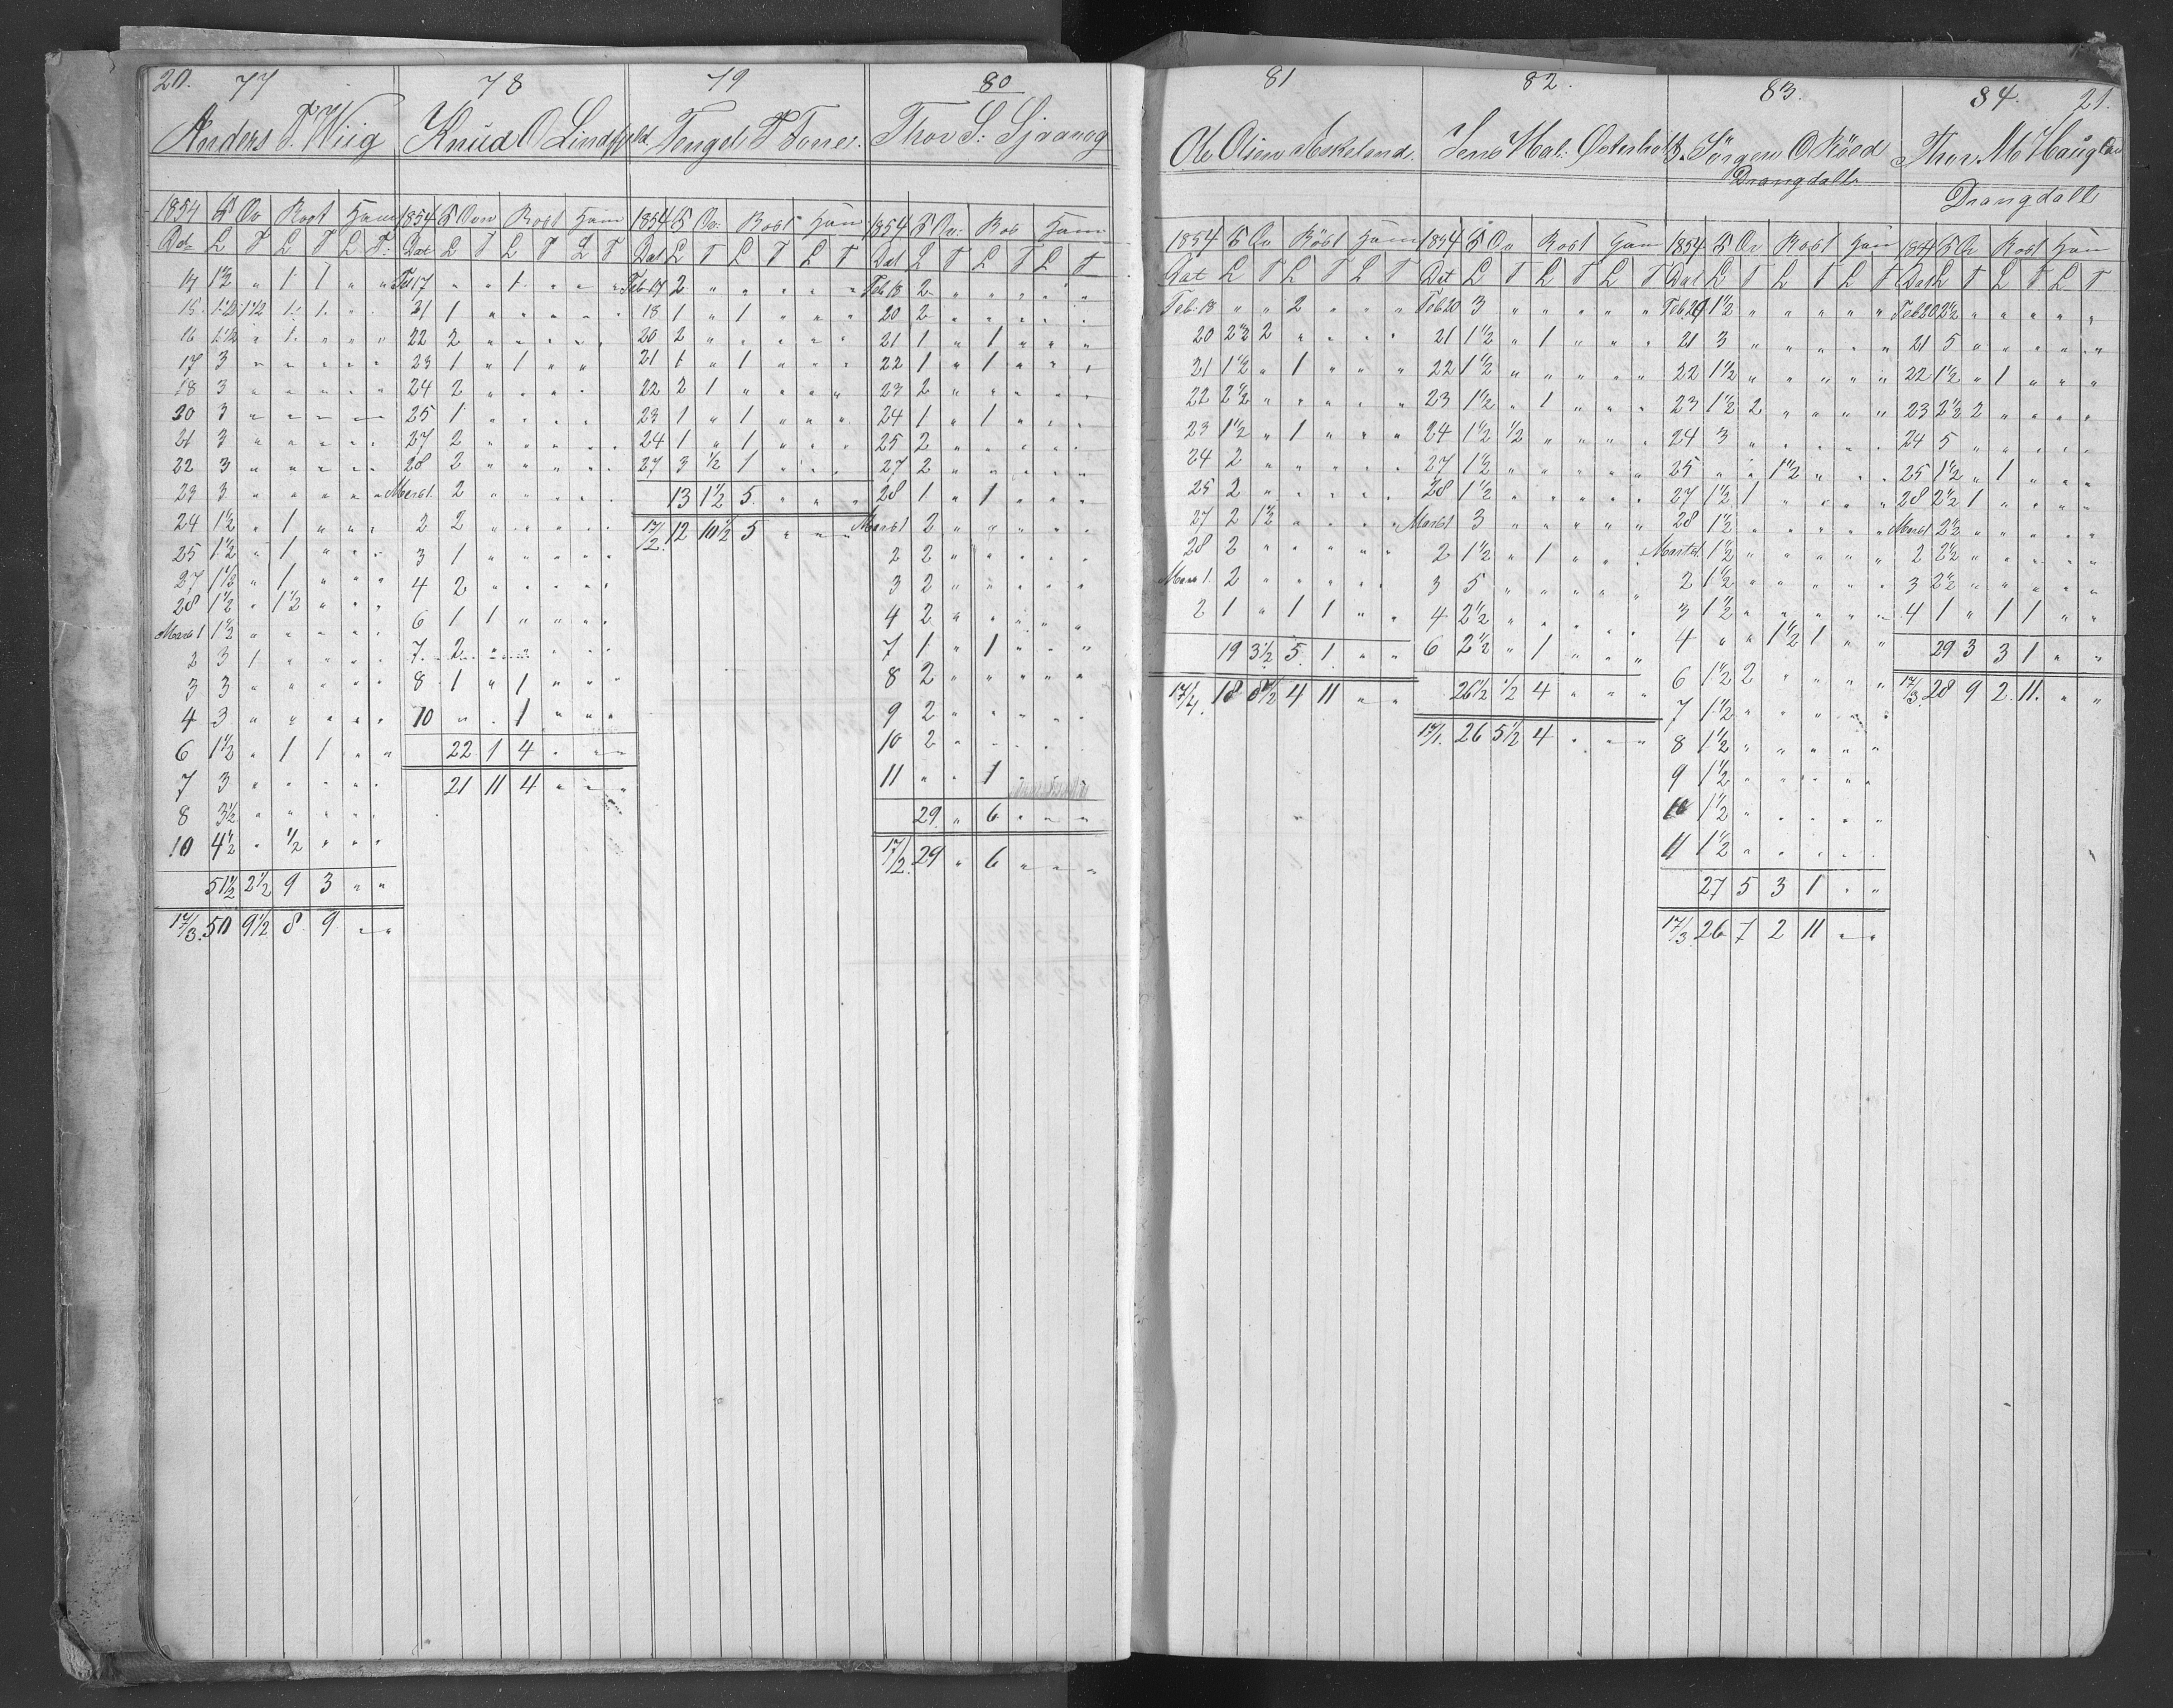 20. 77
Anders T. Wiig
1854 Ov Rost Ham
Dat L T L T L T
14 1½ " 1 1 " "
15 1½ 1½ 1 1 " "
16 1½ " 1 " " "
17 3 " " " " "
18 3 " " " " "
20 3 " " " " "
21 3 " " " " "
22 3 " " " " "
23 3 " " " " "
24 1½ " 1 " " "
25 1½ " 1 " " "
27 1½ " 1 " " "
28 1½ " 1½ " " "
Marts 1 1½ " " " " "
2 3 1 " " " "
3 3 " " " " "
4 3 " " " " "
6 1½ " 1 1 " "
7 3 " " " " "
8 3½ " " " " "
10 4½ " ½ " " "
51½ 2½ 9 3 " "
17/3. 50 9½ 8 9 " "
78
Knud O
1854 Oven Rost Ham
Dat L T L T L T
Feb 17 " " 1 " " "
21 1 " " " " "
22 2 " " " " "
23 1 " 1 " "
24 2 " " " "
25 1 " " " "
27 2 " " " " "
28 2 " " " " "
Marts 1 2 " " " " "
2 2 " " " " "
3 1 " " " " "
4 2 " " " " "
6 1 1 " " " "
7 2 " " " " "
8 1 " 1 " " "
10 " " 1 " " "
22 1 4 " " "
21 11 4 " " "
79
Tengel T Tone
1854 Ov: Rost Ham
Dat L T L T L T
Feb 17 2 " " " " "
18 1 " 1 " " "
20 2 " " " " "
21 1 " 1 " " "
22 2 1 " " " "
23 1 " 1 " " "
24 1 " 1 " " "
27 3 ½ 1 " " "
13 1½ 5 " " "
17/2. 12 10½ 5 " " "
80
Thor S.
1854 Ov: Ros Ham
Dat L T L T L T
Feb 18 2 " " " " "
20 2 " " " " "
21 1 " 1 " " "
22 1 " 1 " " "
23 2 " " " " "
24 1 " 1 " " "
25 2 " " " " "
27 2 " " " " "
28 1 " 1 " " "
Marts 1 2 " " " " "
2 2 " " " " "
3 2 " " " " "
4 2 " " " " "
7 1 " 1 " " "
8 2 " " " " "
9 2 " " " " "
10 2 " " " " "
11 " " 1 "
29 " 6 " " "
17/2. 29 " 6 " " "
81
Ole Olsen Askeland
1854 Ov Röst Ham
Dat L T L T L T
Feb. 18 " " 2 " " "
20 2½ 2 " " " "
21 1½ " 1 " " "
22 2½ " " " " "
23 1½ " 1 " " "
24 2 " " " " "
25 2 " " " " "
27 2 1½ " " " "
28 2 " " " " "
Marts 1 2 " " " " "
2 1 " 1 1 " "
19 3½ 5 1 " "
17/4. 18 8½ 4 11 " "
82.
Jens Hal: Østerholt
1854 Ov Rost Ham
Dat L T L T L T
Feb 20 3 " " " " "
21 1½ " 1 " " "
22 1½ " " " " "
23 1½ " 1 " " "
24 1½ ½ " " " "
27 1½ " " " " "
28 1½ " " " " "
Marts 1 3 " " " " "
2 1½ " 1 " " "
3 5 " " " " "
4 2½ " " " " "
6 2½ " 1 " " "
26½ ½ 4 " " "
17/1. 26 5½ 4 " " "
83.
Jörgen O Röed
Drangdall
1854 Ov Rost Ham
Dat L T L T L T
Feb 20 1½ " " " " "
21 3 " " " " "
22 1½ " " " " "
23 1½ 2 " " " "
24 3 " " " " "
25 " " 1½ " " "
27 1½ 1 " " " "
28 1½ " " " " "
Marts 1 1½ " " " " "
2 1½ " " " " "
3 1½ " " " " "
4 " " 1½ 1 " "
6 1½ 2 " " " "
7 1½ " " " " "
8 1½ " " " " "
9 1½ " " " " "
10 1½ " " " " "
11 1½ " " " " "
27 5 3 1 " "
17/3. 26 7 2 11 " "
84. 21.
Thor M
Drangdall
1854 Ov Rost Ham
Dat L T L T L T
Feb 20 2½ " " " " "
21 5 " " " " "
22 1½ " 1 " " "
23 2½ 2 " " " "
24 5 " " " " "
25 1½ " 1 " " "
28 2½ 1 " " " "
Marts 1 2½ " " " " "
2 2½ " " " " "
3 2½ " " " " "
4 1 " 1 1 " "
29 3 3 1 " "
17/3. 28 9 2 11. " "